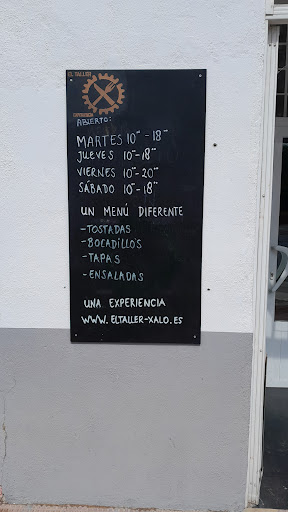 EL TALLER
EXPERIENCIA
ABIERTO:
MARTES 10⁰⁰-18⁰⁰
JUEVES 10⁰⁰-18⁰⁰
VIERNES 10⁰⁰-20⁰⁰
SÁBADO 10⁰⁰-18⁰⁰
UN MENÚ DIFERENTE
-TOSTADAS
-BOCADILLOS
-TAPAS
-ENSALADAS
UNA EXPERIENCIA
WWW.ELTALLER-XALO.ES